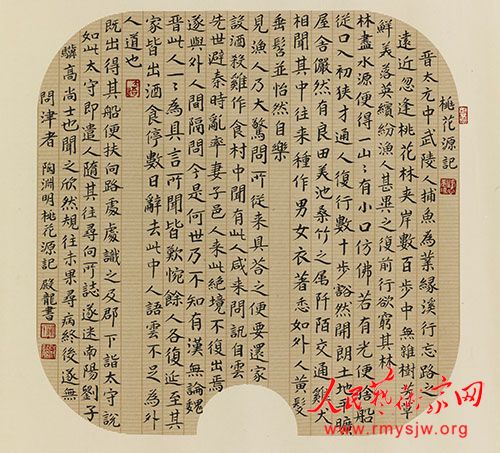 桃花源記
晋太元中武陵人捕魚為業緣溪行忘路之
遠近忽逢桃花林夾岸數百步中無雜樹芳草
鮮美落英繽紛漁人甚異之復前行欲窮其林
林盡水源便得一山〻有小口仿佛若有光便捨船
從口入初狭才通人復行數十步豁然開朗土地平曠
屋舍儼然有良田美池桑竹之属阡陌交通雞犬
相聞其中往来種作男女衣著悉如外人黄髮
垂髫並怡然自樂
見漁人乃大驚問所從来具答之便要還家
設酒殺雞作食村中聞有此人咸来問訊自雲
先世避秦時亂率妻子邑人来此絕境不復出焉
遂與外人間隔問今是何世乃不知有漢無論魏
晋此人一〻為具言所聞皆歎惋餘人各復延至其
家皆出酒食停數日辭去此中人語雲不足為外
人道也
既出得其船便扶向路處處識之及郡下詣太守說
如此太守即遣人隨其往尋向所誌遂迷南陽劉子
驥高尚士也聞之欣然規往未果尋病終後遂無
問津者 陶淵明桃花源記 殿龍書
人民艺术家网
www.rmysjw.org